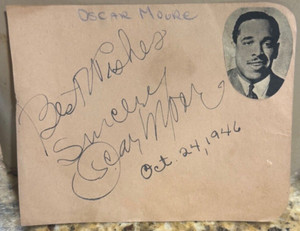 OSCAR MOORE
Best Wishes
Sincerely
Oscar Moore
Oct. 24, 1946